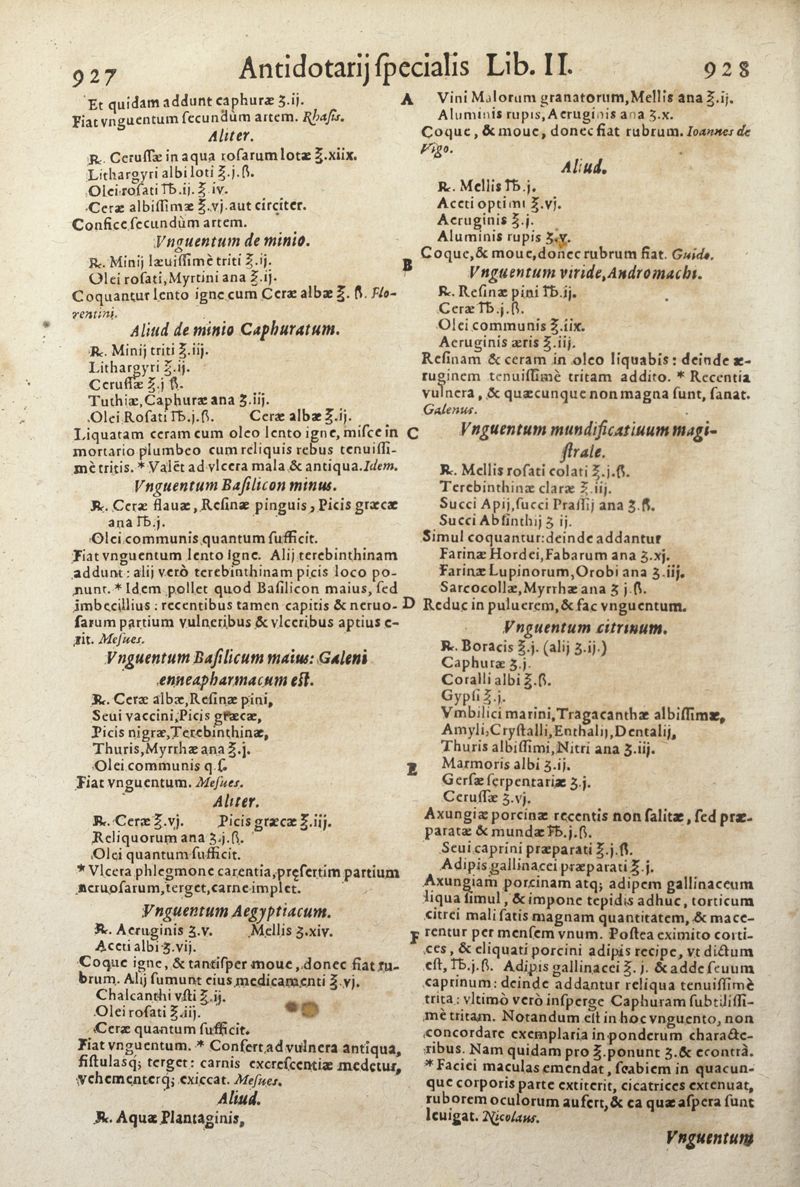 927
Antidotarij ſpecialis Lib. II.
928
Et quidam addunt caphuræ ʒ.ij.
Fiat vnguentum ſecundùm artem. Rhaſis.
Aliter.
℞. Ceruſſæ in aqua roſarum lotæ ℥.xiix.
Lithargyri albi loti ℥.j.ß.
Olei roſati ℔.ij.℥ iv.
Ceræ albiſſimæ ℥.vj.aut circiter.
Confice ſecundùm artem.
Vnguentum de minio.
℞. Minij læuiſſimè triti ℥.ij.
Olei roſati,Myrtini ana ℥.ij.
Coquantur lento igne cum Ceræ albæ ℥. ß. Flo-
rentini.
Aliud de minio Caphuratum.
℞. Minij triti ℥.iij.
Lithargyri ℥.ij.
Ceruſſæ ℥.j ß.
Tuthiæ,Caphuræ ana ʒ.iij.
Olei Roſati ℔.j.ß. Ceræ albæ ℥.ij.
Liquatam ceram cum oleo lento igne, miſce in
mortario plumbeo cum reliquis rebus tenuiſſi-
mè tritis. * Valēt ad vlcera mala & antiqua.Idem.
Vnguentum Baſilicon minus.
℞. Ceræ flauæ, Reſinæ pinguis, Picis græcæ
ana ℔.j.
Olei communis quantum ſufficit.
Fiat vnguentum lento igne. Alij terebinthinam
addunt : alij verò terebinthinam picis loco po-
nunt. * Idem pollet quod Baſilicon maius, ſed
imbecillius : recentibus tamen capitis & neruo-
ſarum partium vulneribus & vlceribus aptius e-
rit. Meſues.
Vnguentum Baſilicum maius: Galeni
enneapharmacum eſt.
℞. Ceræ albæ,Reſinæ pini,
Seui vaccini,Picis græcæ,
Picis nigræ,Terebinthinæ,
Thuris,Myrrhæ ana ℥.j.
Olei communis q ſ.
Fiat vnguentum. Meſues.
Aliter.
℞. Ceræ ℥.vj. Picis græcæ ℥.iij.
Reliquorum ana ʒ.j.ß.
Olei quantum ſufficit.
* Vlcera phlegmone carentia,pręſertim partium
neruoſarum,terget,carne implet.
Vnguentum Aegyptiacum.
℞. Aeruginis ʒ.v. Mellis ʒ.xiv.
Aceti albi ʒ.vij.
Coque igne, & tantiſper moue, donec fiat ru-
brum. Alij ſumunt eius medicamenti ℥.vj.
Chalcanthi vſti ℥.ij.
Olei roſati ℥.iij.
Ceræ quantum ſufficit.
Fiat vnguentum. * Confert ad vulnera antiqua,
fiſtulasq; terget: carnis excreſcentiæ medetur,
vehementerq; exiccat. Meſues.
Aliud.
℞. Aquæ Plantaginis,
A Vini Malorum granatorum,Mellis ana ℥.ij.
Aluminis rupis,Aeruginis ana ʒ.x.
Coque, & moue, donec fiat rubrum. Ioannes de
Vigo.
Aliud.
℞. Mellis ℔.j.
Aceti optimi ℥.vj.
Aeruginis ℥.j.
Aluminis rupis ʒ.v.
Coque,& moue,donec rubrum fiat. Guido.
B Vnguentum viride,Andromachi.
℞. Reſinæ pini ℔.ij.
Ceræ ℔.j.ß.
Olei communis ℥.iix.
Aeruginis æris ℥.iij.
Reſinam & ceram in oleo liquabis : deinde æ-
ruginem tenuiſſimè tritam addito. * Recentia
vulnera, & quæcunque non magna ſunt, ſanat.
Galenus.
C Vnguentum mundificatiuum magi-
ſtrale.
℞. Mellis roſati colati ℥.j.ß.
Terebinthinæ claræ ℥.iij.
Succi Apij,ſucci Praſſij ana ʒ.ß.
Succi Abſinthij ʒ ij.
Simul coquantur:deinde addantur
Farinæ Hordei,Fabarum ana ʒ.xj.
Farinæ Lupinorum,Orobi ana ʒ.iij.
Sarcocollæ,Myrrhæ ana ʒ j ß.
D Reduc in puluerem,& fac vnguentum.
Vnguentum citrinum.
℞. Boracis ℥.j. (alij ʒ.ij.)
Caphuræ ʒ.j.
Coralli albi ℥.ß.
Gypſi ℥.j.
Vmbilici marini,Tragacanthæ albiſſimæ,
Amyli,Cryſtalli,Enthalij,Dentalij,
Thuris albiſſimi,Nitri ana ʒ.iij.
E Marmoris albi ʒ.ij.
Gerſæ ſerpentariæ ʒ.j.
Ceruſſæ ʒ.vj.
Axungiæ porcinæ recentis non ſalitæ, ſed præ-
paratæ & mundæ ℔.j.ß.
Seui caprini præparati ℥.j.ß.
Adipis gallinacei præparati ℥.j.
Axungiam porcinam atq; adipem gallinaceum
liqua ſimul, & impone tepidis adhuc, torticum
citrei mali ſatis magnam quantitatem, & mace-
F rentur per menſem vnum. Poſtea eximito corti-
ces, & eliquati porcini adipis recipe, vt dictum
eſt, ℔.j.ß. Adipis gallinacei ℥. j. & adde ſeuum
caprinum: deinde addantur reliqua tenuiſſimè
trita : vltimò verò inſperge Caphuram ſubtiliſſi-
mè tritam. Notandum eſt in hoc vnguento, non
concordare exemplaria in ponderum characte-
ribus. Nam quidam pro ℥.ponunt ʒ.& econtrà.
* Faciei maculas emendat, ſcabiem in quacun-
que corporis parte extiterit, cicatrices extenuat,
ruborem oculorum aufert,& ea quæ aſpera ſunt
leuigat. Nicolaus.
Vnguentum